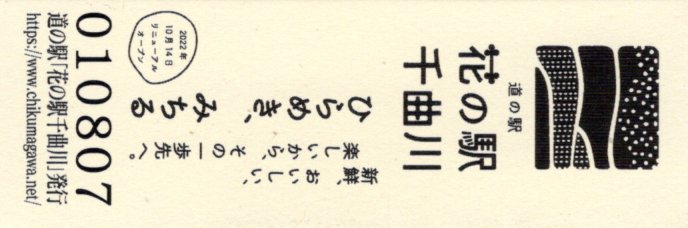 道の駅
花の駅
千曲川
ひらめき、みちる
新鮮、おいしい、
楽しいから、その一歩先へ。
2022年
10月14日
リニューアル
オープン
010807
道の駅「花の駅千曲川」発行
https://www.chikumagawa.net/